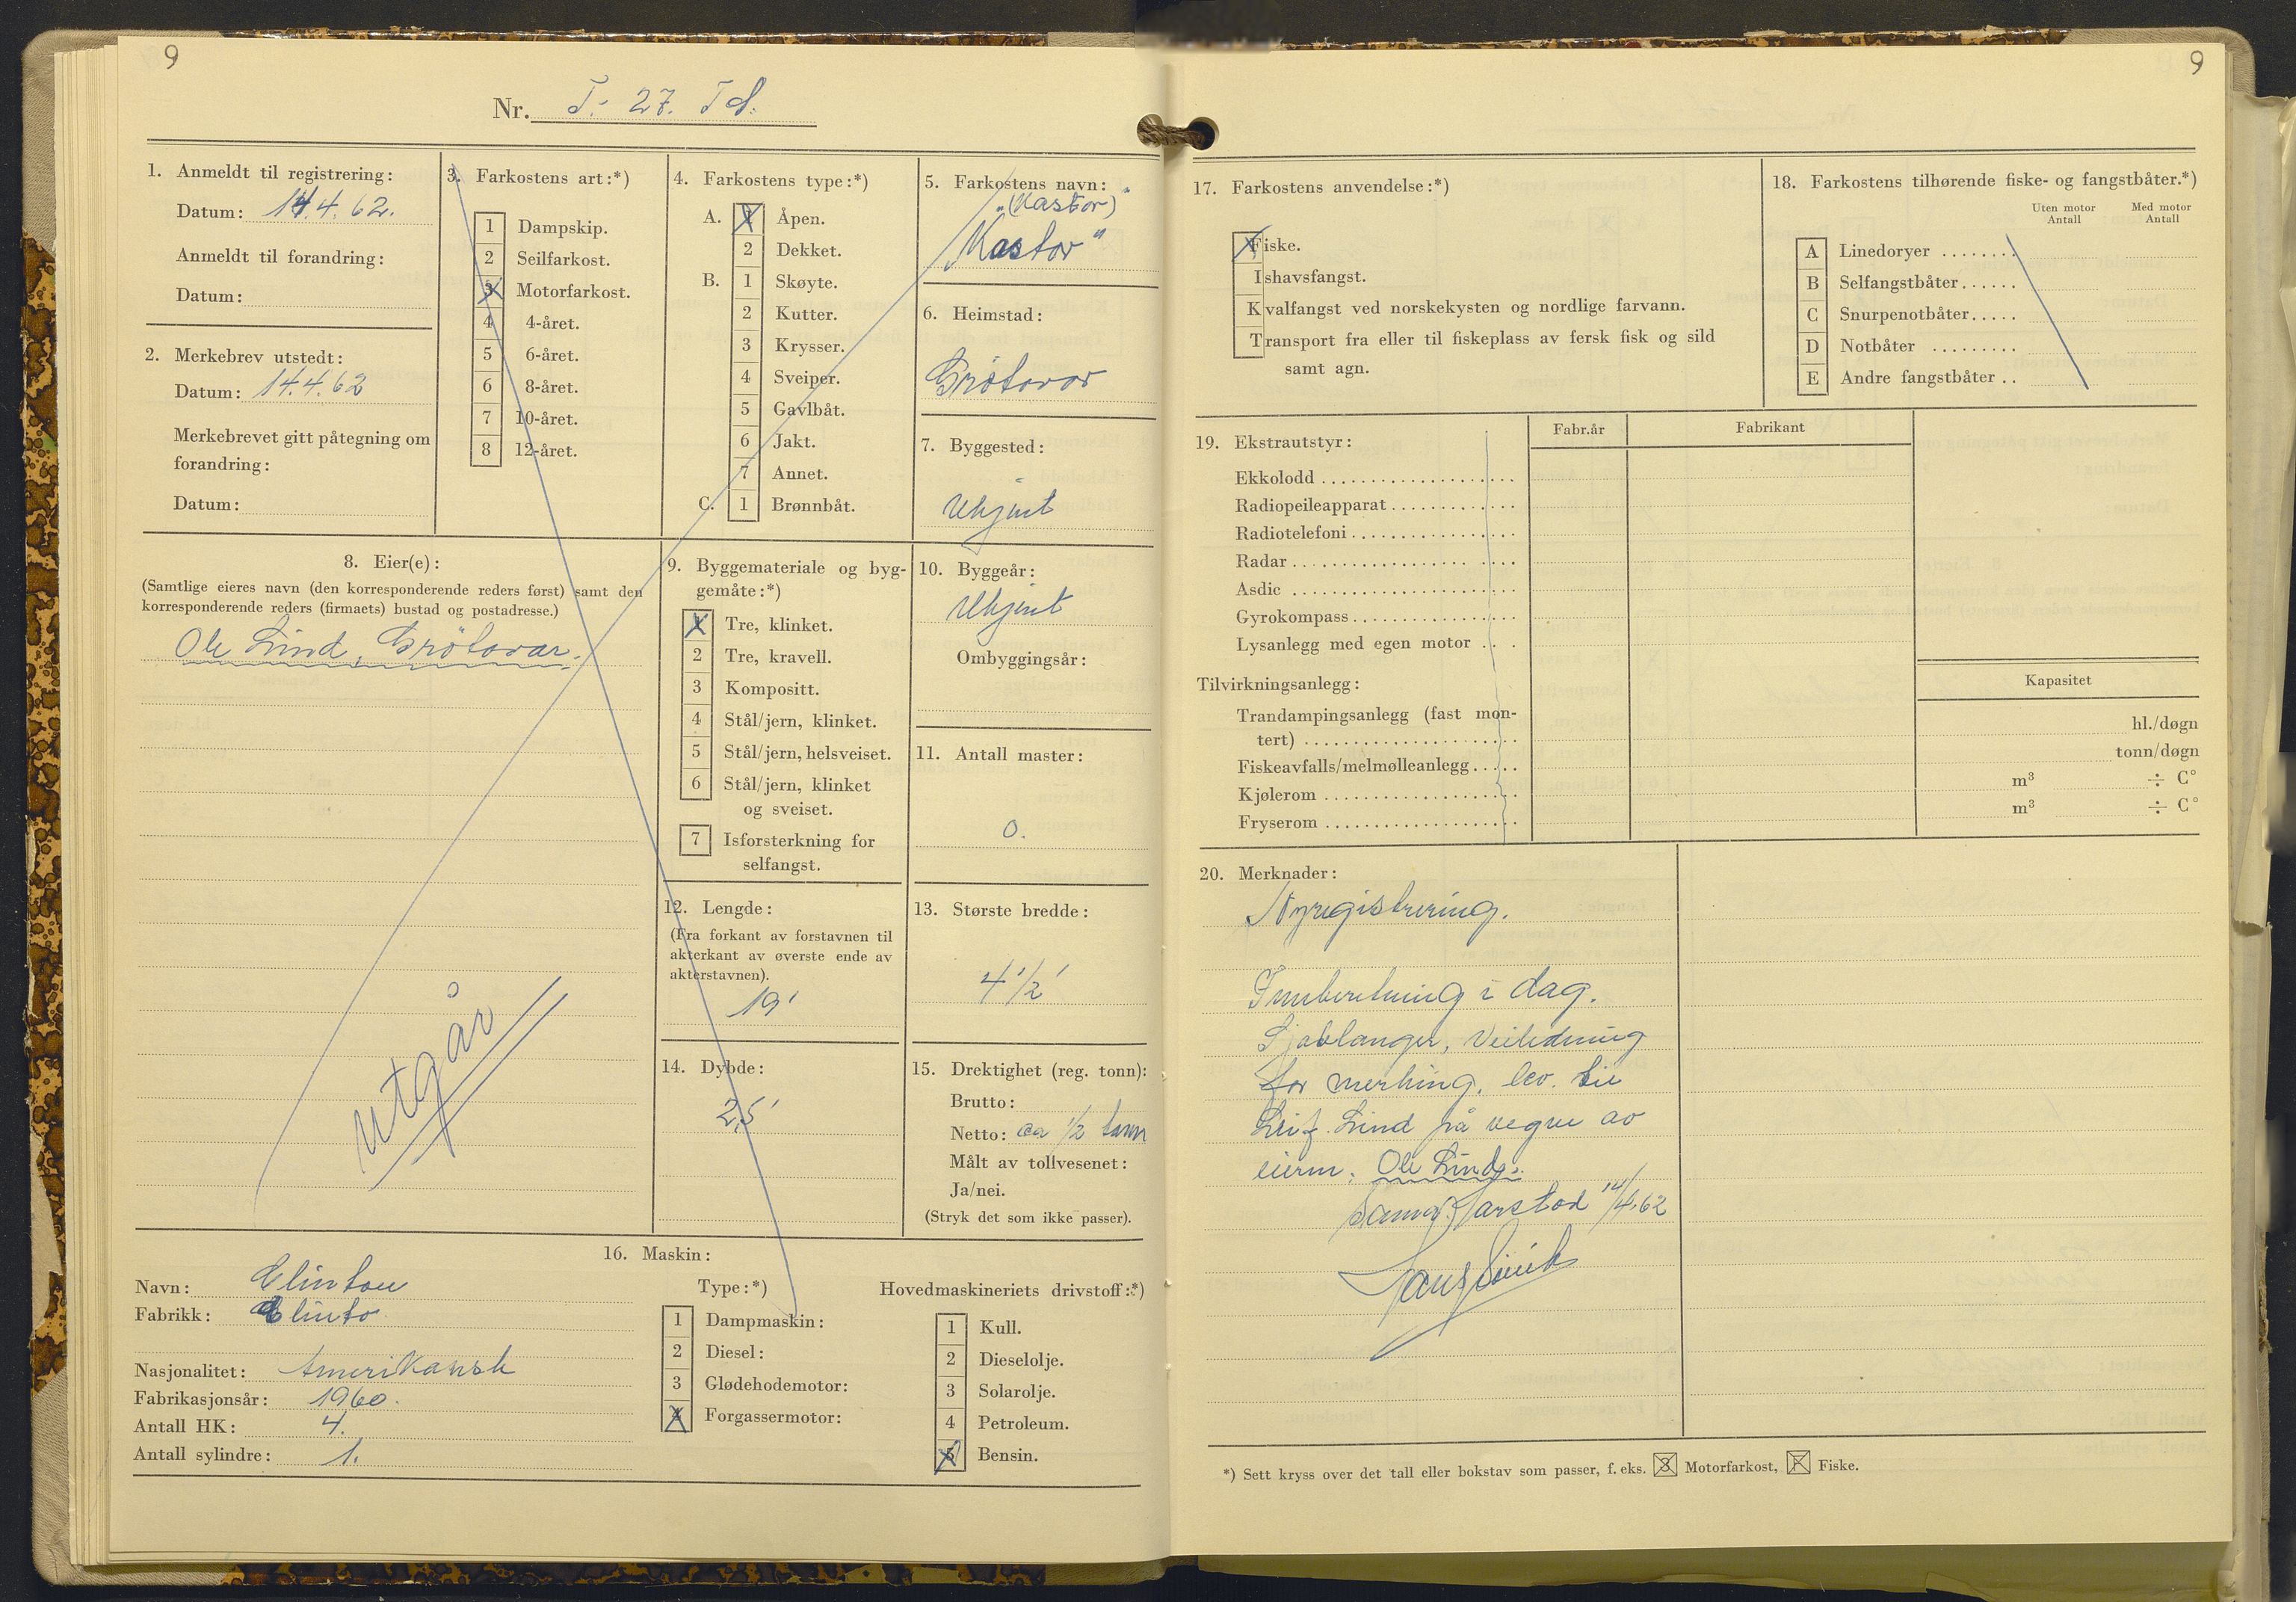 9
Nr. T. 27. Td.
1. Anmeldt til registrering:
Datum: 14.4.62.
Anmeldt til forandring:
Datum:
2. Merkebrev utstedt:
Datum: 14.4.62
Merkebrevet gitt påtegning om
forandring:
Datum:
3. Farkostens art:*)
1 Dampskip.
2 Seilfarkost.
3 Motorfarkost.
4 4-året.
5 6-året.
6 8-året.
7 10-året.
8 12-året.
4. Farkostens type:*)
A. 1 Åpen.
2 Dekket.
B. 1 Skøyte.
2 Kutter.
3 Krysser.
4 Sveiper.
5 Gavlbåt.
6 Jakt.
7 Annet.
C. 1 Brønnbåt.
5. Farkostens navn:
"(Kastor)"
"Kastor"
6. Heimstad:
Grötavær
7. Byggested:
Ukjent
8. Eier(e):
(Samtlige eieres navn (den korresponderende reders først) samt den
korresponderende reders (firmaets) bustad og postadresse.)
Ole Lind, Grötavær.
utgår
9. Byggemateriale og byg-
gemåte:*)
1 Tre, klinket.
2 Tre, kravell.
3 Kompositt.
4 Stål/jern, klinket.
5 Stål/jern, helsveiset.
6 Stål/jern, klinket
og sveiset.
7 Isforsterkning for
selfangst.
10. Byggeår:
Ukjent
Ombyggingsår:
11. Antall master:
0.
12. Lengde:
(Fra forkant av forstavnen til
akterkant av øverste ende av
akterstavnen).
19'
13. Største bredde:
4 1/2'
14. Dybde:
2,5'
15. Drektighet (reg. tonn):
Brutto:
Netto: ca 1/2 tonn
Målt av tollvesenet:
Ja/nei.
(Stryk det som ikke passer).
16. Maskin:
Navn: Clinton
Fabrikk: Clinto
Nasjonalitet: Amerikansk
Fabrikasjonsår: 1960.
Antall HK: 4.
Antall sylindre: 1.
Type:*)
1 Dampmaskin:
2 Diesel:
3 Glødehodemotor:
4 Forgassermotor:
Hovedmaskineriets drivstoff:*)
1 Kull.
2 Dieselolje.
3 Solarolje.
4 Petroleum.
5 Bensin.
9
17. Farkostens anvendelse:*)
Fiske.
Ishavsfangst.
Kvalfangst ved norskekysten og nordlige farvann.
Transport fra eller til fiskeplass av fersk fisk og sild
samt agn.
18. Farkostens tilhørende fiske- og fangstbåter.*)
Uten motor Med motor
Antall Antall
A Linedoryer
B Selfangstbåter
C Snurpenotbåter
D Notbåter
E Andre fangstbåter
19. Ekstrautstyr: Fabr.år Fabrikant
Ekkolodd
Radiopeileapparat
Radiotelefoni
Radar
Asdic
Gyrokompass
Lysanlegg med egen motor
Tilvirkningsanlegg: Kapasitet
Trandampingsanlegg (fast mon-
tert) hl./døgn
Fiskeavfalls/melmølleanlegg tonn/døgn
Kjølerom m³ ÷ C°
Fryserom m³ ÷ C°
20. Merknader:
Nyregistrering.
Innberetning i dag.
Sjablanger, Veiledning
for merking, lev. til
Leif Lind på vegne av
eieren: Ole Lind.
Harstad 14/4.62
*) Sett kryss over det tall eller bokstav som passer, f. eks. 3 Motorfarkost, F Fiske.